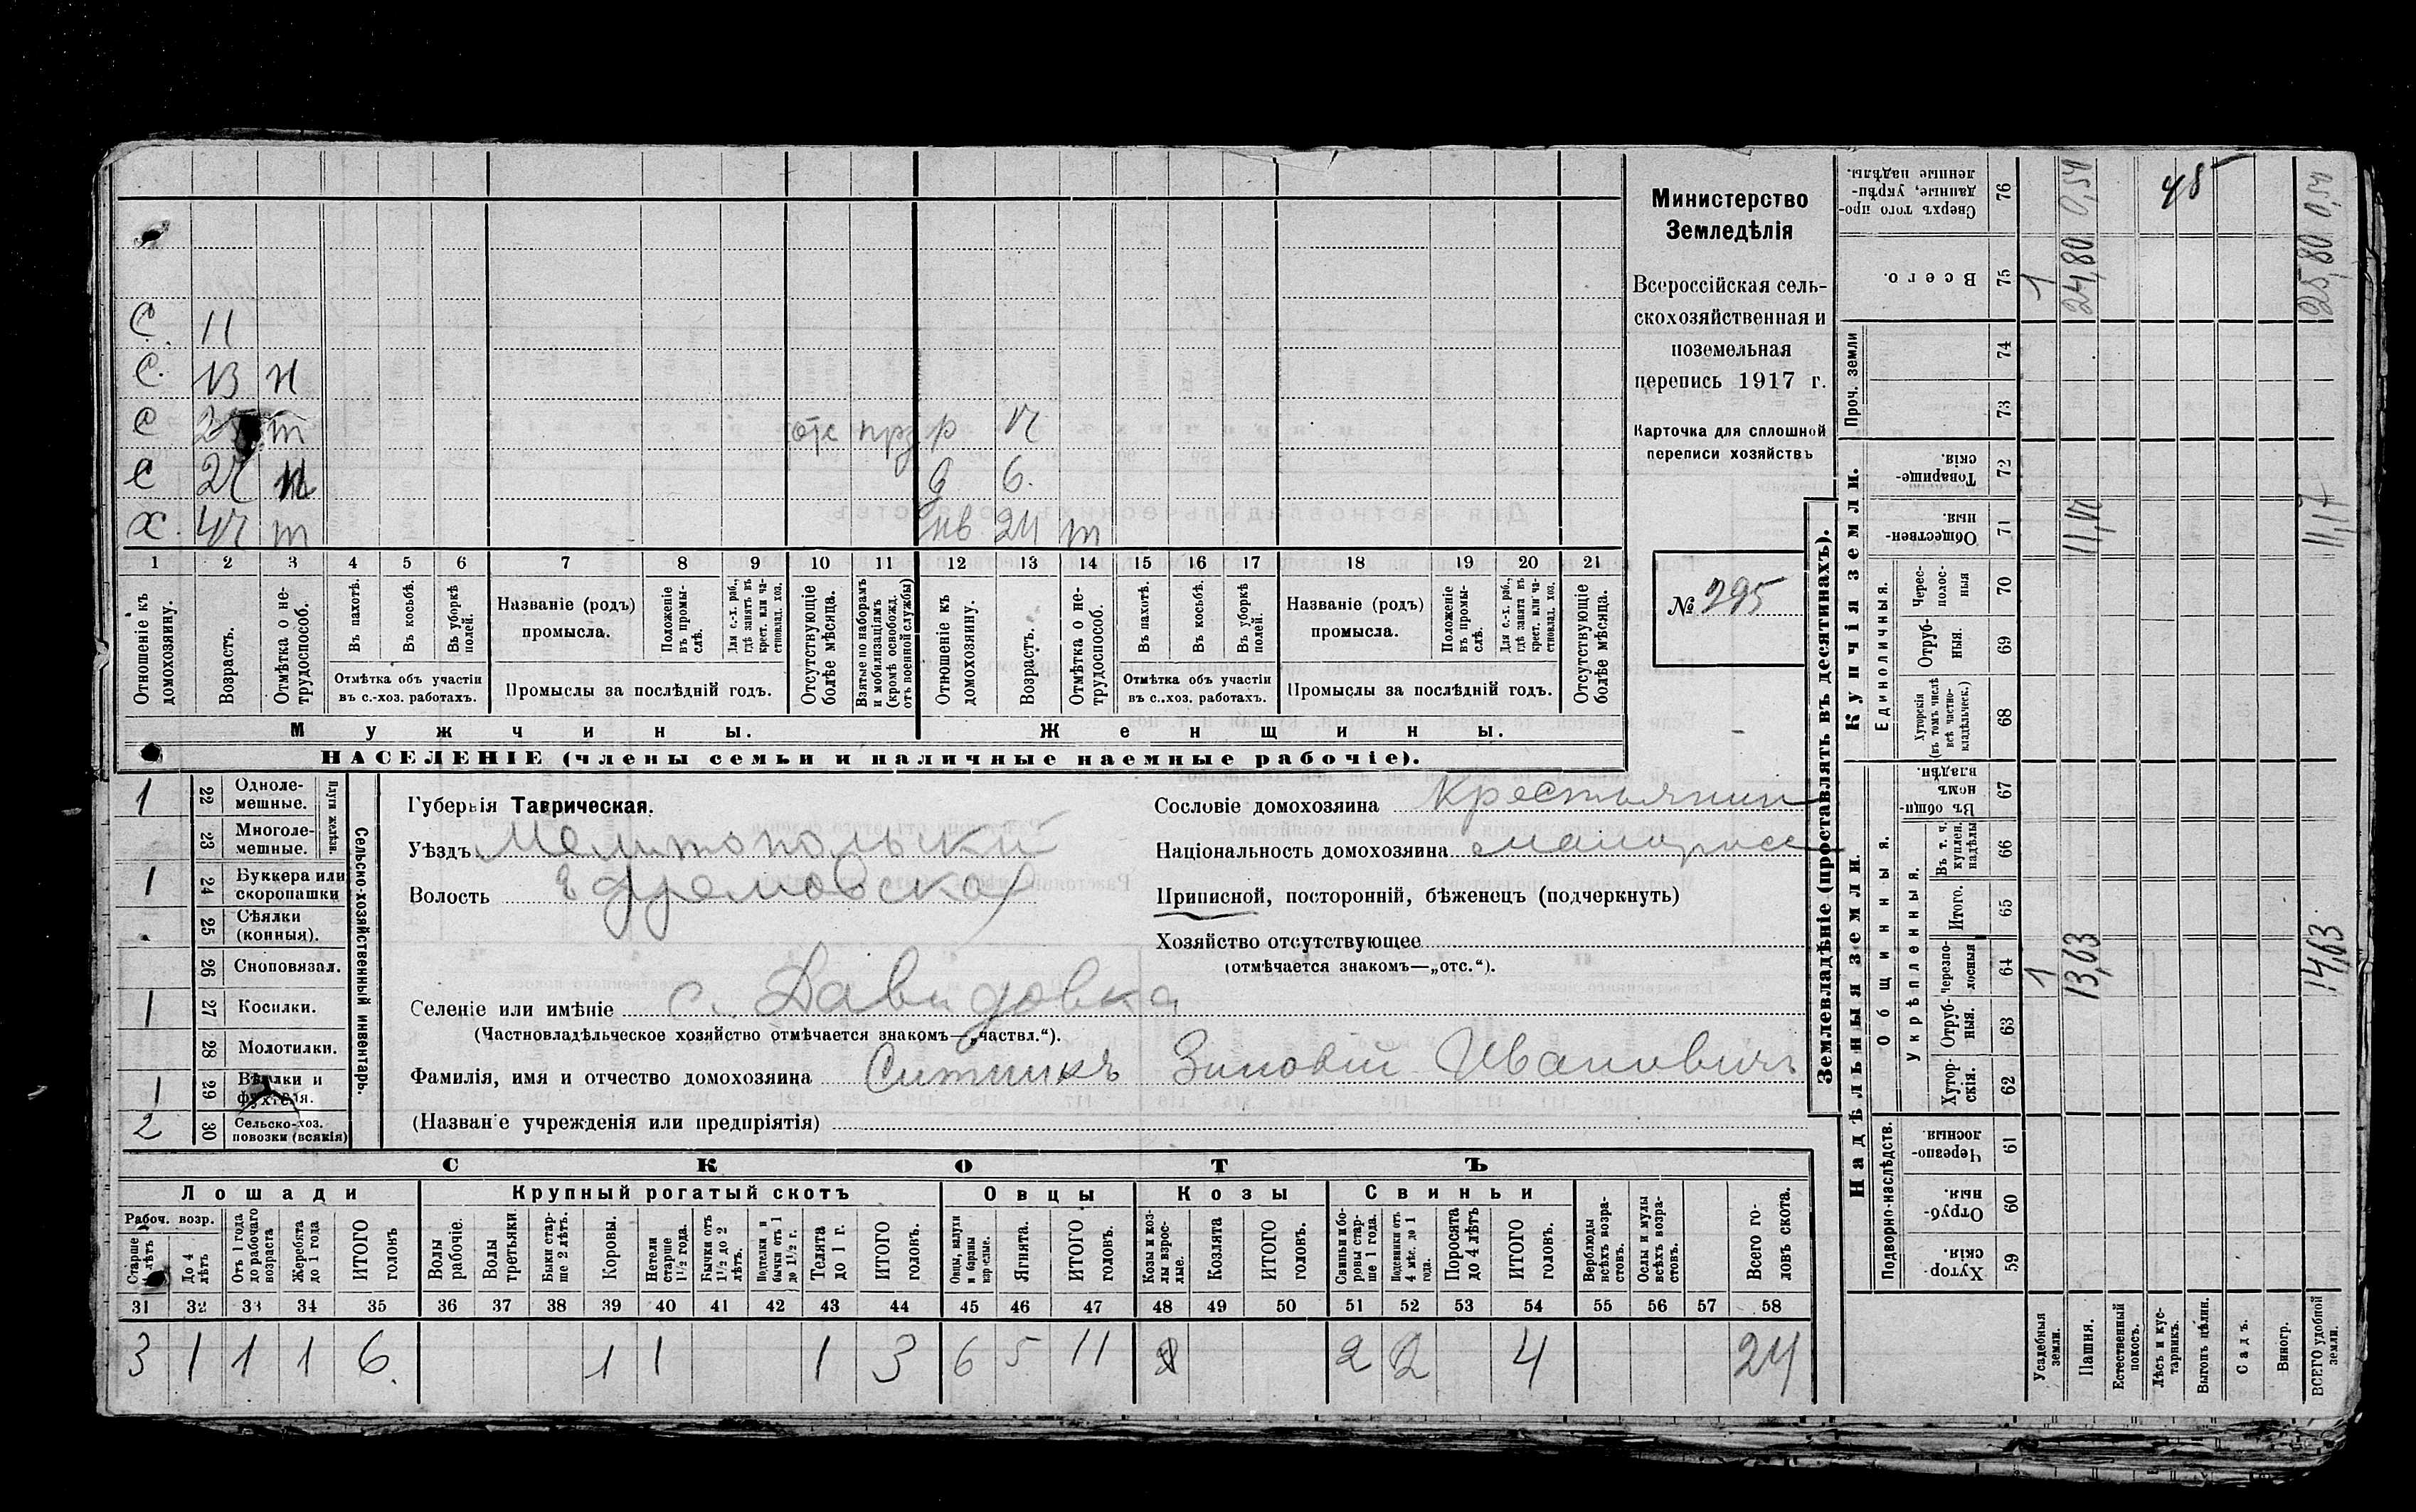 С. 11
С. 13 н
С 25 т от прз р 12
С 22 н д 6.
Х. 42 т жнв 24 т
1 2 3 4 5 6 7 8 9 10 11 12 13 14 15 16 17 18 19 20 21
Отношеніе къ домохозяину.
Возрастъ.
Отмѣтка о не-
трудоспособ.
Въ пахотѣ.
Въ косьбѣ.
Въ уборкѣ полей.
Отмѣтка объ участіи
въ с.-хоз. работахъ.
Названіе (родъ)
промысла.
Положеніе въ промы-
слѣ.
Для с.-х. раб.,
гдѣ занятъ въ
крест. или ча-
стновлад. хоз.
Промыслы за послѣдній годъ.
Отсутствующіе
болѣе мѣсяца.
Взятые по наборамъ
и мобилизаціямъ
(кромѣ освобожд.
отъ военной службы)
Отношеніе къ
домохозяину.
Возрастъ.
Отмѣтка о не-
трудоспособ.
Въ пахотѣ.
Въ косьбѣ.
Въ уборкѣ
полей.
Отмѣтка объ участіи
въ с.-хоз. работахъ.
Названіе (родъ)
промысла.
Положеніе
въ промы-
слѣ.
Для с.-х. раб.,
гдѣ занята въ
крест. или ча-
стновлад. хоз.
Промыслы за послѣдній годъ.
Отсутствующіе
болѣе мѣсяца.
Мужчины.
Женщины.
НАСЕЛЕНІЕ (члены семьи и наличные наемные рабочіе).
Министерство
Земледѣлія
Всероссійская сель-
скохозяйственная и
поземельная
перепись 1917 г.
Карточка для сплошной
переписи хозяйствъ
№ 295
1 22 Одноле-
мешные.
23 Многоле-
мешные.
Плуги желѣзн.
1 24 Буккера или
скоропашки
25 Сѣялки
(конныя).
26 Сноповязал.
1 27 Косилки.
28 Молотилки.
1 29 Вѣялки и
фухтеля.
2 30 Сельско-хоз.
повозки (всякія)
Сельско-хозяйственный инвентарь.
Губернія Таврическая.
Уѣздъ Мелитопольскій
Волость Ефремовская
Селеніе или имѣніе с. Давидовка
(Частновладѣльческое хозяйство отмѣчается знакомъ—„частвл.“).
Фамилія, имя и отчество домохозяина Ситникъ Зиновій Ивановичъ
(Названіе учрежденія или предпріятія)
Сословіе домохозяина Крестьянин
Національность домохозяина малоросс
Приписной, посторонній, бѣженецъ (подчеркнуть)
Хозяйство отсутствующее
(отмѣчается знакомъ—„отс.“).
СКОТЪ
Лошади Крупный рогатый скотъ Овцы Козы Свиньи
Рабоч. возр.
Старше 4 лѣтъ
До 4 лѣтъ
Отъ 1 года
до рабочаго
возраста
Жеребята
до 1 года
ИТОГО
головъ
Волы
рабочіе.
Волы
третьяки.
Быки стар-
ше 2 лѣтъ.
Коровы.
Нетели
старше
1½ года.
Бычки отъ
1½ до 2
лѣтъ.
Подтелки и
бычки отъ 1
до 1½ г.
Телята
до 1 г.
ИТОГО
головъ.
Овцы, валухи
и бараны
взрослые.
Ягнята.
ИТОГО
головъ.
Козы и коз-
лы взрос-
лые.
Козлята
ИТОГО
головъ.
Свиньи и бо-
ровы стар-
ше 1 года.
Подсвинки отъ
4 мѣс. до 1
года.
Поросята
до 4 лѣтъ
ИТОГО
головъ.
Верблюды
всѣхъ возра-
стовъ.
Ослы и мулы
всѣхъ возра-
стовъ.
Всего го-
ловъ скота.
31 32 33 34 35 36 37 38 39 40 41 42 43 44 45 46 47 48 49 50 51 52 53 54 55 56 57 58
3 1 1 1 6. 1 1 1 3 6 5 11 2 2 4 24
Землевладѣніе (проставлять въ десятинахъ).
Надѣльныя земли.
Купчія земли.
Проч. земли
Подворно-наслѣдств.
Общинныя.
Укрѣпленныя.
Единоличныя.
Хутор-
скія. 59
Отруб-
ныя. 60
Черезпо-
лосныя 61
Хутор-
скія. 62
Отруб-
ныя. 63
Черезпо-
лосныя 64
Итого. 65
Въ т. ч.
куплен.
надѣлы 66
Въ общи-
номъ
владѣн. 67
Хуторскія
(въ томъ числѣ
всѣ частно-
владѣльческ.) 68
Отруб-
ныя. 69
Черес-
полос-
ныя 70
Обществен-
ныя. 71
Товарище-
скія. 72
73
74
Всего. 75
Сверхъ того про-
данные, укрѣп-
ленные надѣлы. 76
Усадебныя
земли. 1 1
Пашня. 13,63 11,17 24,80 0,54
Естественный
покосъ.
Лѣсъ и кус-
тарникъ. 48
Выгонъ цѣлин.
Садъ.
Виногр.
ВСЕГО удобной
земли. 14,63 11,17 25,80 0,54